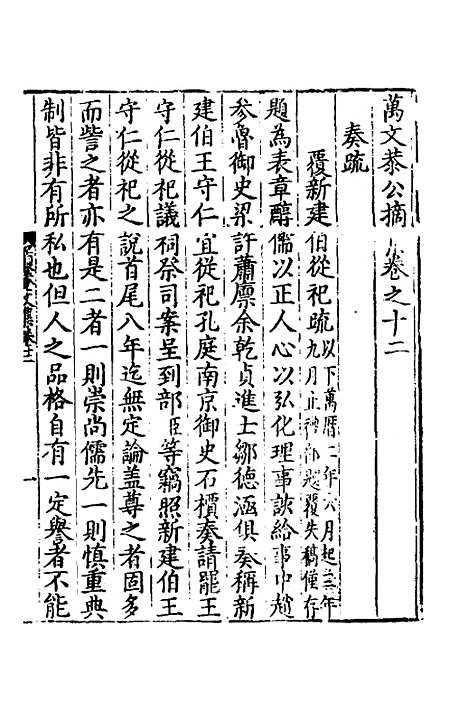 萬文恭公摘集卷之十二
奏疏
覆新建伯從祀疏以下萬曆二年六月起至三年九月止神部題覆失稿僅存
題為表章醇儒以正人心以弘化理事該給事中趙
參魯御史梁許蕭廩余乾貞進士鄒德涵俱奏稱新
建伯王守仁宜從祀孔庭南京御史石檟奏請罷王
守仁從祀議祠祭司案呈到部臣等竊照新建伯王
守仁從祀之說首尾八年迄無定論蓋尊之者固多
而訾之者亦有是二者一則崇尚儒先一則慎重典
制皆非有所私也但人之品格自有一定譽者不能
一